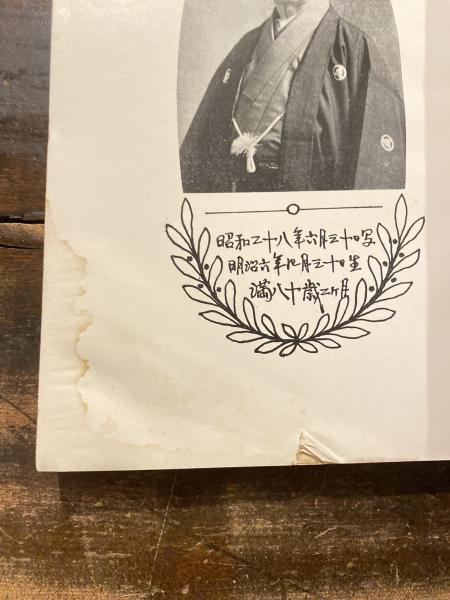 昭和二十八年六月三十日写
明治六年四月三十日生
満八十歳二ヶ月